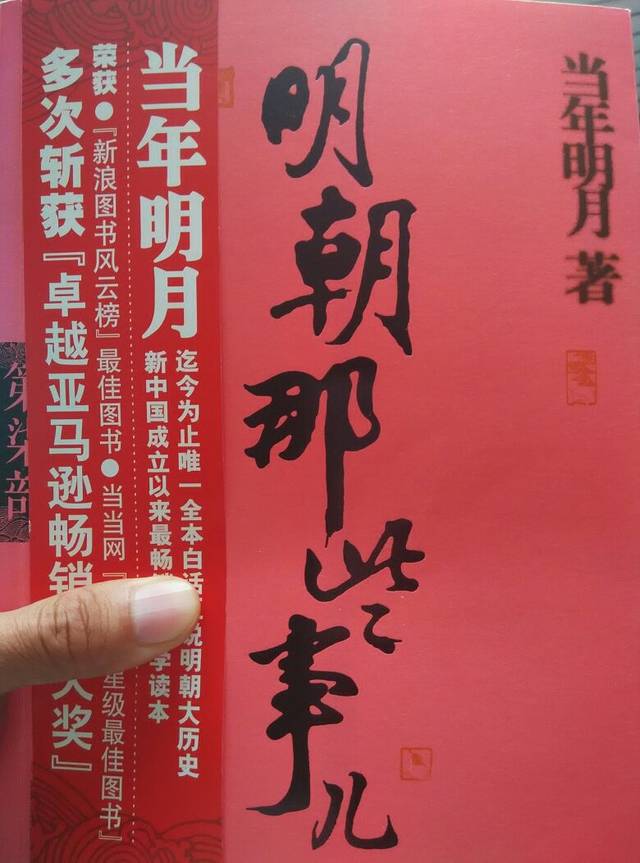 当年明月 著
明朝那些事儿
当年明月
迄今为止唯一全本白话 说明朝大历史
新中国成立以来最畅 学读本
荣获●『新浪图书风云榜』最佳图书●当当网『 星级最佳图书』
多次斩获『卓越亚马逊畅销 大奖』
第柒部